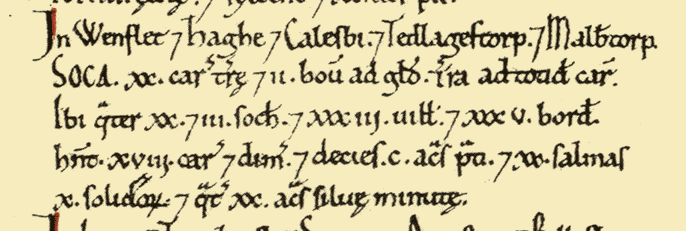 In Wenflet ⁊ haghe ⁊ Calesbi. ⁊ Tedlagestorp. ⁊ Malbtorp.
SOCA. xx. car̃ tr̃ę ⁊ ii. boũ ad gld̃. Tr̃a ad totid̃ car̃.
Ibi q̃ter xx. ⁊ iii. soch̃. ⁊ xxxiii. uill̃. ⁊ xxxv. bord̃.
hñt. xviii. car̃ ⁊ dim̃. ⁊ decies. c. ac̃s p̃ti. ⁊ xx. salinas
x. solidoꝝ. ⁊ q̃t̃ xx. ac̃s siluę minutę.